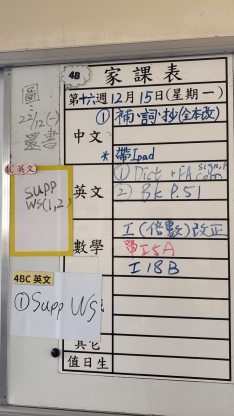 4B
家課表
第十六週12月15日(星期一)
圖:
22/12(一)
還書
中文
①補·詞·抄(全本改)
*帶Ipad
4C 英文
supp
WS(1,2)
英文
① Dict + FA sign, P. corr.
② Bk P.51
數學
I(倍數)改正
I5A
I18B
4BC 英文
①Supp WS
其它
值日生